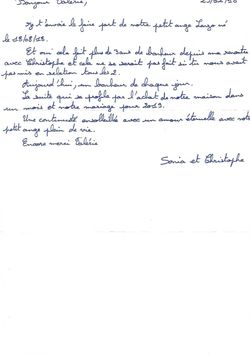 Bonjour Valérie,
je t'envoie le faire part de notre petit ange Lenzo né
le 28/08/25.
Et oui cela fait plus de 3 ans de bonheur depuis ma rencontre
avec Christophe et cela ne se serait pas fait si tu nous avait
pas mis en relation tous les 2.
Aujourd'hui, un bonheur de chaque jour.
La suite qui se profile par l'achat de notre maison dans
un mois et notre mariage pour
Une continuité ensoleillée avec un amour éternelle avec notre
petit ange plein de vie.
Encore merci Valérie
Sonia et Christophe